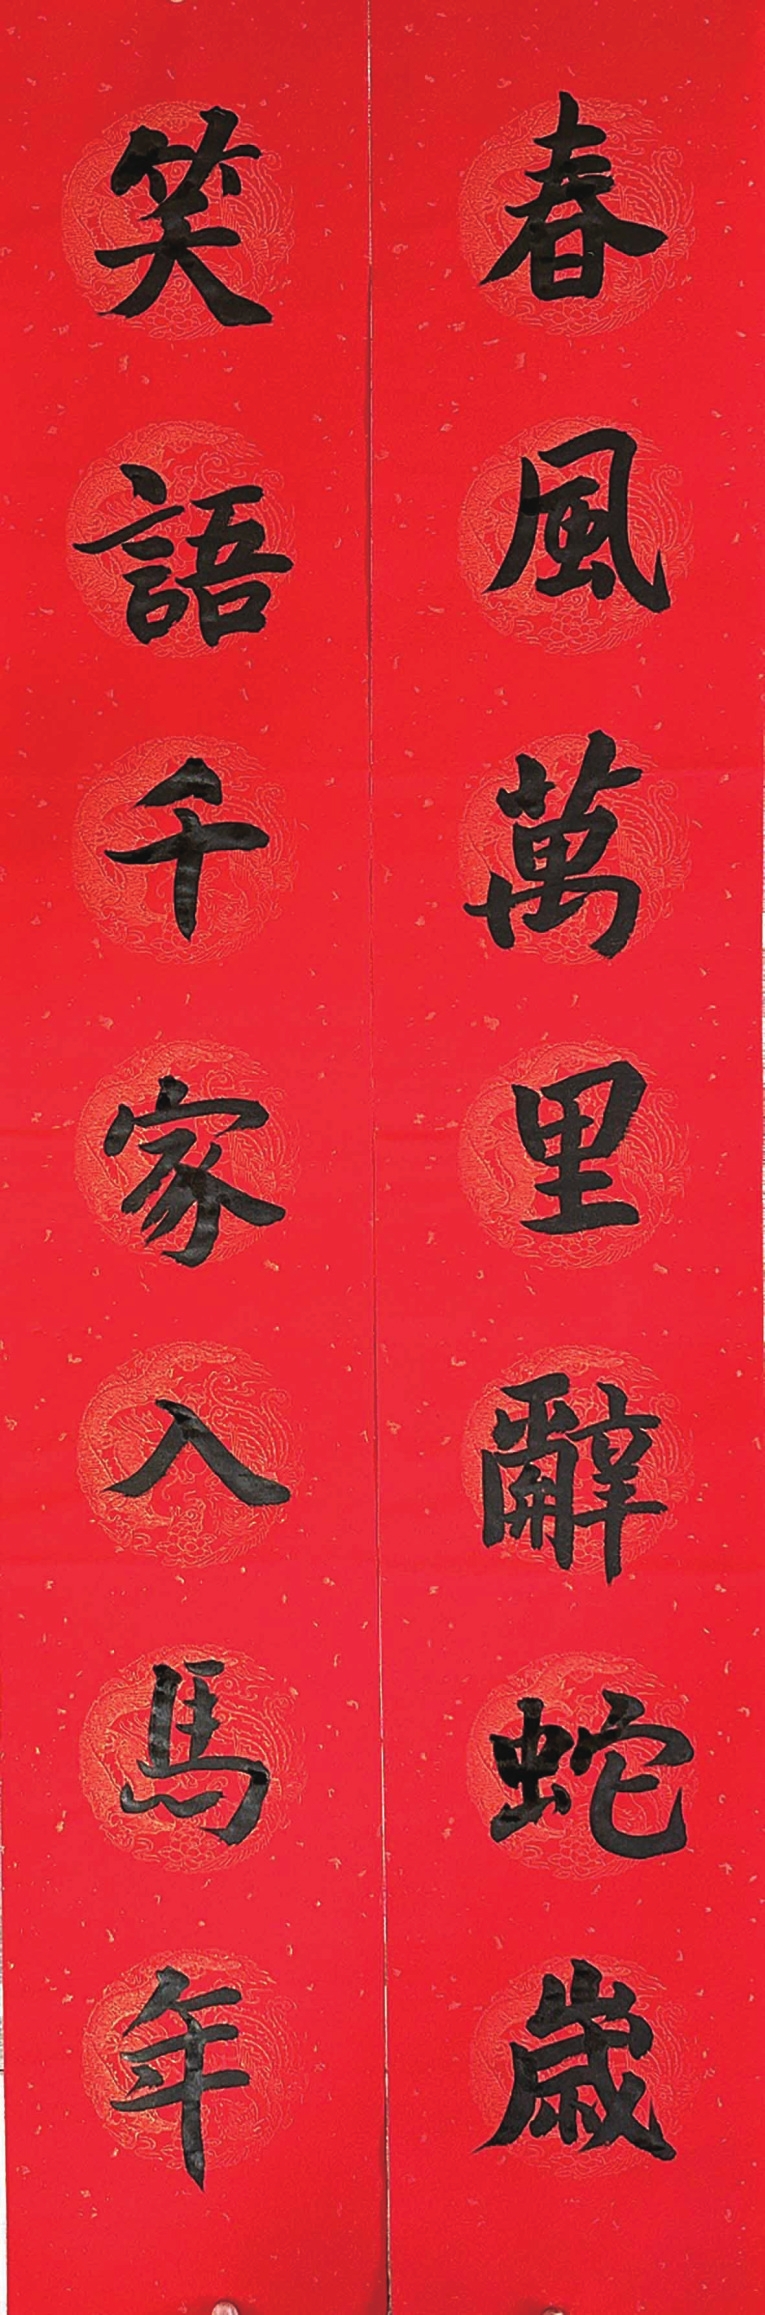 春風萬里辭蛇歲
笑語千家入馬年